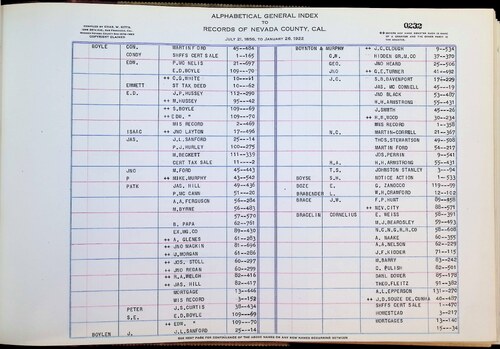 ALPHABETICAL GENERAL INDEX
TO
RECORDS OF NEVADA COUNTY, CAL.
JULY 21, 1856, TO JANUARY 28, 1922
0232
COPYRIGHT CLAIMED
BOYLE EDW, MARTIN FORD 45--404
CONDY SHFFS CERT SALE 1--165
EDW, P, MC NELIS 21--697
E.D, BOYLE 109--70
++ C,S, WHITE 10--41
EMMETT ST TAX DEED 10--62
E.D. J.P, HUSSEY 112--290
++ M, HUSSEY 95--42
++ S, BOYLE 109--69
++ EDW, " 109--70
MIS RECORD 2--469
ISAAC ++ JNO LAYTON 17--496
JAS, J.L, SANFORD 25--14
P,J, HURLEY 100--275
M, BECKETT 111--339
CERT TAX SALE 11--2
JNO M, FORD 45--443
P ++ MIKE, MURPHY 43--542
PATK JAS, HILL 49--436
P, MC CANN 51--20
A.A, FERGUSON 56--204
M, BYRNE 56--483
57--570
N, PAPA 62--761
EX, MG, CO 89--430
++ A, GLENES 61--283
++ JNO MACKIN 81--696
++ D, MORGAN 61--286
++ JOS, STOLL 60--297
++ JNO REHAN 60--299
++ R,A, WELCH 82--416
++ JAS, HILL 82--417
MORTGAGE 13--446
MIS RECORD 3--152
PETER J,S, CURTIS 38--434
S,E, E.D, BOYLE 109--69
++ EDW, " 109--70
BOYLEN J, J.L, SANFORD 25--14
BOYNTON & MURPHY ++ J,C, CLOUGH 9--534
C,M, HIDDEN GR, M, CO 37--370
GEO, JNO HEARD 25--506
JNO ++ G,E, TURNER 41--492
J,C, S,B, DAVENPORT 17--299
JAS, MC CONNELL 45--19
JNO BLACK 53--487
H,H, ARMSTRONG 55--431
J, SMITH 45--26
++ H,H, ROOD 30--234
MIS RECORD 1--358
N,C, MARTIN-CORNELL 21--367
THOS, STEWARTSON 49--508
MARTIN FORD 54--217
JOS, PERKIN 9--541
R,A, H,H, ARMSTRONG 55--431
T,S, JOHNSTON STANLEY 3--54
BOYSE S,H, NOTICE ACTION 1--533
BOZE E, G, ZANOCCO 119--99
BRABENDER L, W,H, CRAWFORD 12--102
BRACE J,W, F,P, HUNT 89--458
++ NEV, CITY 88--571
BRACELIN CORNELIUS E, WEISS 58--391
W,J, BEARDSLEY 59--493
N,C, N, G, R, R, CO 58--608
A, NAAKE 60--355
A,A, NELSON 62--229
J,F, KIDDER 71--115
M, BARRY 83--242
C, PULISH 82--501
DANL DOVER 95--178
THEO, FLEITZ 91--382
A,L, EPPERSON 131--270
++ J,D, SOUZE DE, CUNHA 40--487
SHFFS CERT SALE 1--470
HOMESTEAD 3--217
MORTGAGES 13--140
15--34